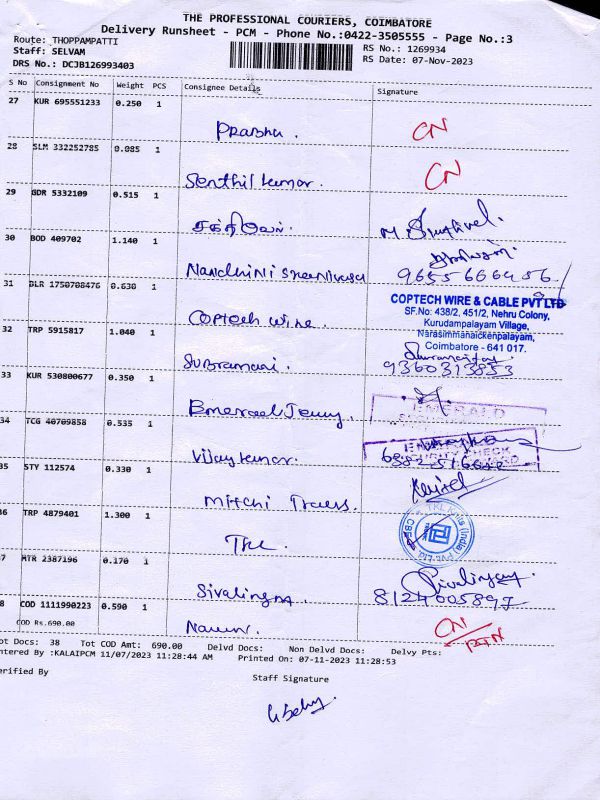 THE PROFESSIONAL COURIERS, COIMBATORE
Delivery Runsheet - PCM - Phone No.:0422-3505555 - Page No.:3
Route: THOPPAMPATTI
Staff: SELVAM
RS No.: 1269934
DRS No.: DCJB126993403
RS Date: 07-Nov-2023
S No Consignment No Weight PCS Consignee Details Signature
27 KUR 695551233 0.250 1
Prabhu. CN
28 SLM 332252785 0.085 1
Senthil kumar. CN
29 GDR 5332109 0.515 1
சக்திவேல்.
30 BOD 409702 1.140 1
Nandhini sreenivasa 9655666456
31 BLR 1750708476 0.630 1
COPTECH WIRE & CABLE PVT LTD
SF.No: 438/2, 451/2, Nehru Colony,
Kurudampalayam Village,
Narasimmanaickenpalayam,
Coimbatore - 641 017.
Coptech wire.
32 TRP 5915817 1.040 1
Subramani. 9360313853
33 KUR 530800677 0.350 1
EMERALD
Emerael Jenny.
34 TCG 40709858 0.535 1
Vijaykumar.
35 STY 112574 0.330 1
Mitchi Traess.
36 TRP 4879401 1.300 1
TKL Knits (India) Pvt. Ltd
TKL.
37 MTR 2387196 0.170 1
Sivalingam. 8124005897
38 COD 1111990223 0.590 1
COD Rs.690.00
CN
RTN
Tot Docs: 38 Tot COD Amt: 690.00 Delvd Docs: Non Delvd Docs: Delvy Pts:
Entered By :KALAIPCM 11/07/2023 11:28:44 AM Printed On: 07-11-2023 11:28:53
Verified By Staff Signature